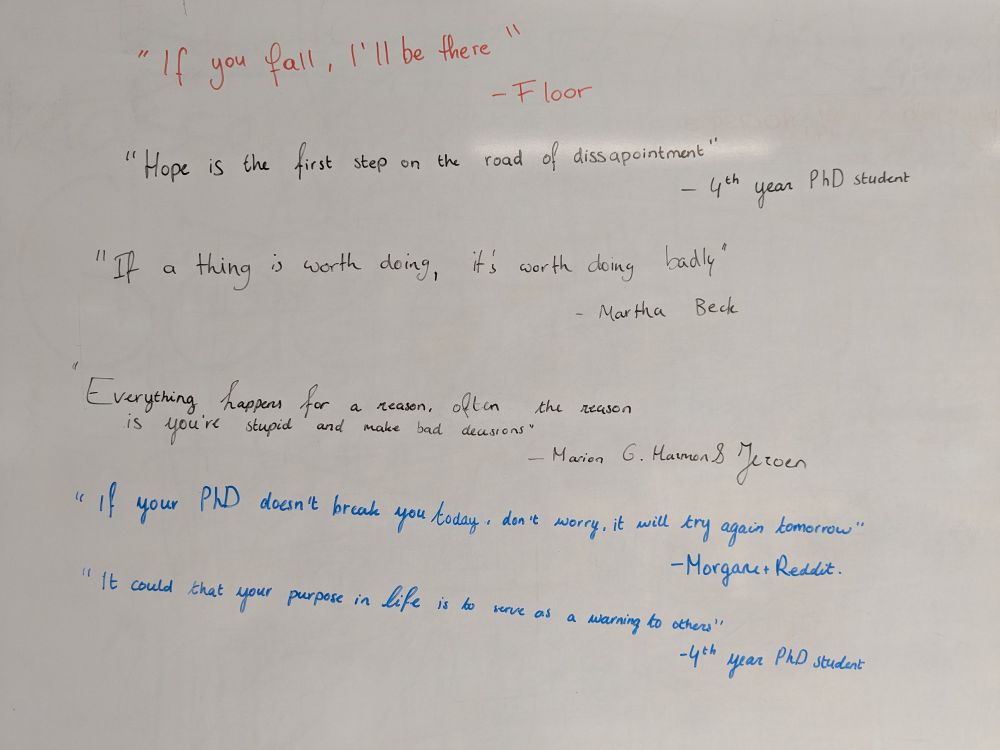 "If you fall, I'll be there"
- Floor
"Hope is the first step on the road of dissapointment"
- 4th year PhD student
"If a thing is worth doing, it's worth doing badly"
- Martha Beck
"Everything happens for a reason, often the reason
is you're stupid and make bad decisions"
- Marion G. Harmon & Jeroen
"If your PhD doesn't break you today, don't worry, it will try again tomorrow"
- Morgane + Reddit.
"It could that your purpose in life is to serve as a warning to others"
- 4th year PhD student